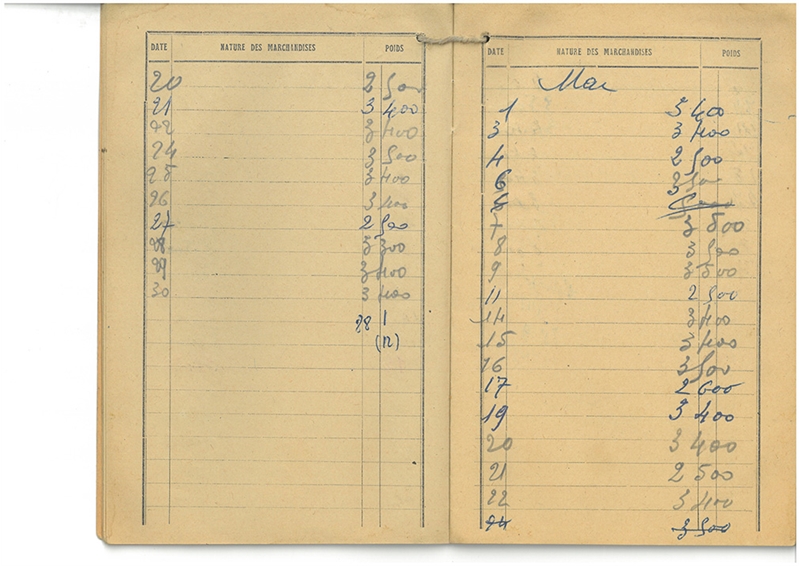 DATE NATURE DES MARCHANDISES POIDS
20 2 500
21 3 400
22 3 400
24 3 500
25 3 400
26 3 400
27 2 500
28 3 300
29 3 400
30 3 400
28 1
(12)
DATE NATURE DES MARCHANDISES POIDS
Mai
1 3 400
3 3 400
4 2 500
6 3 500
6
7 3 500
8 3 500
9 3 500
11 2 500
14 3 400
15 3 400
16 3 500
17 2 600
19 3 400
20 3 400
21 2 500
22 3 400
24 3 500